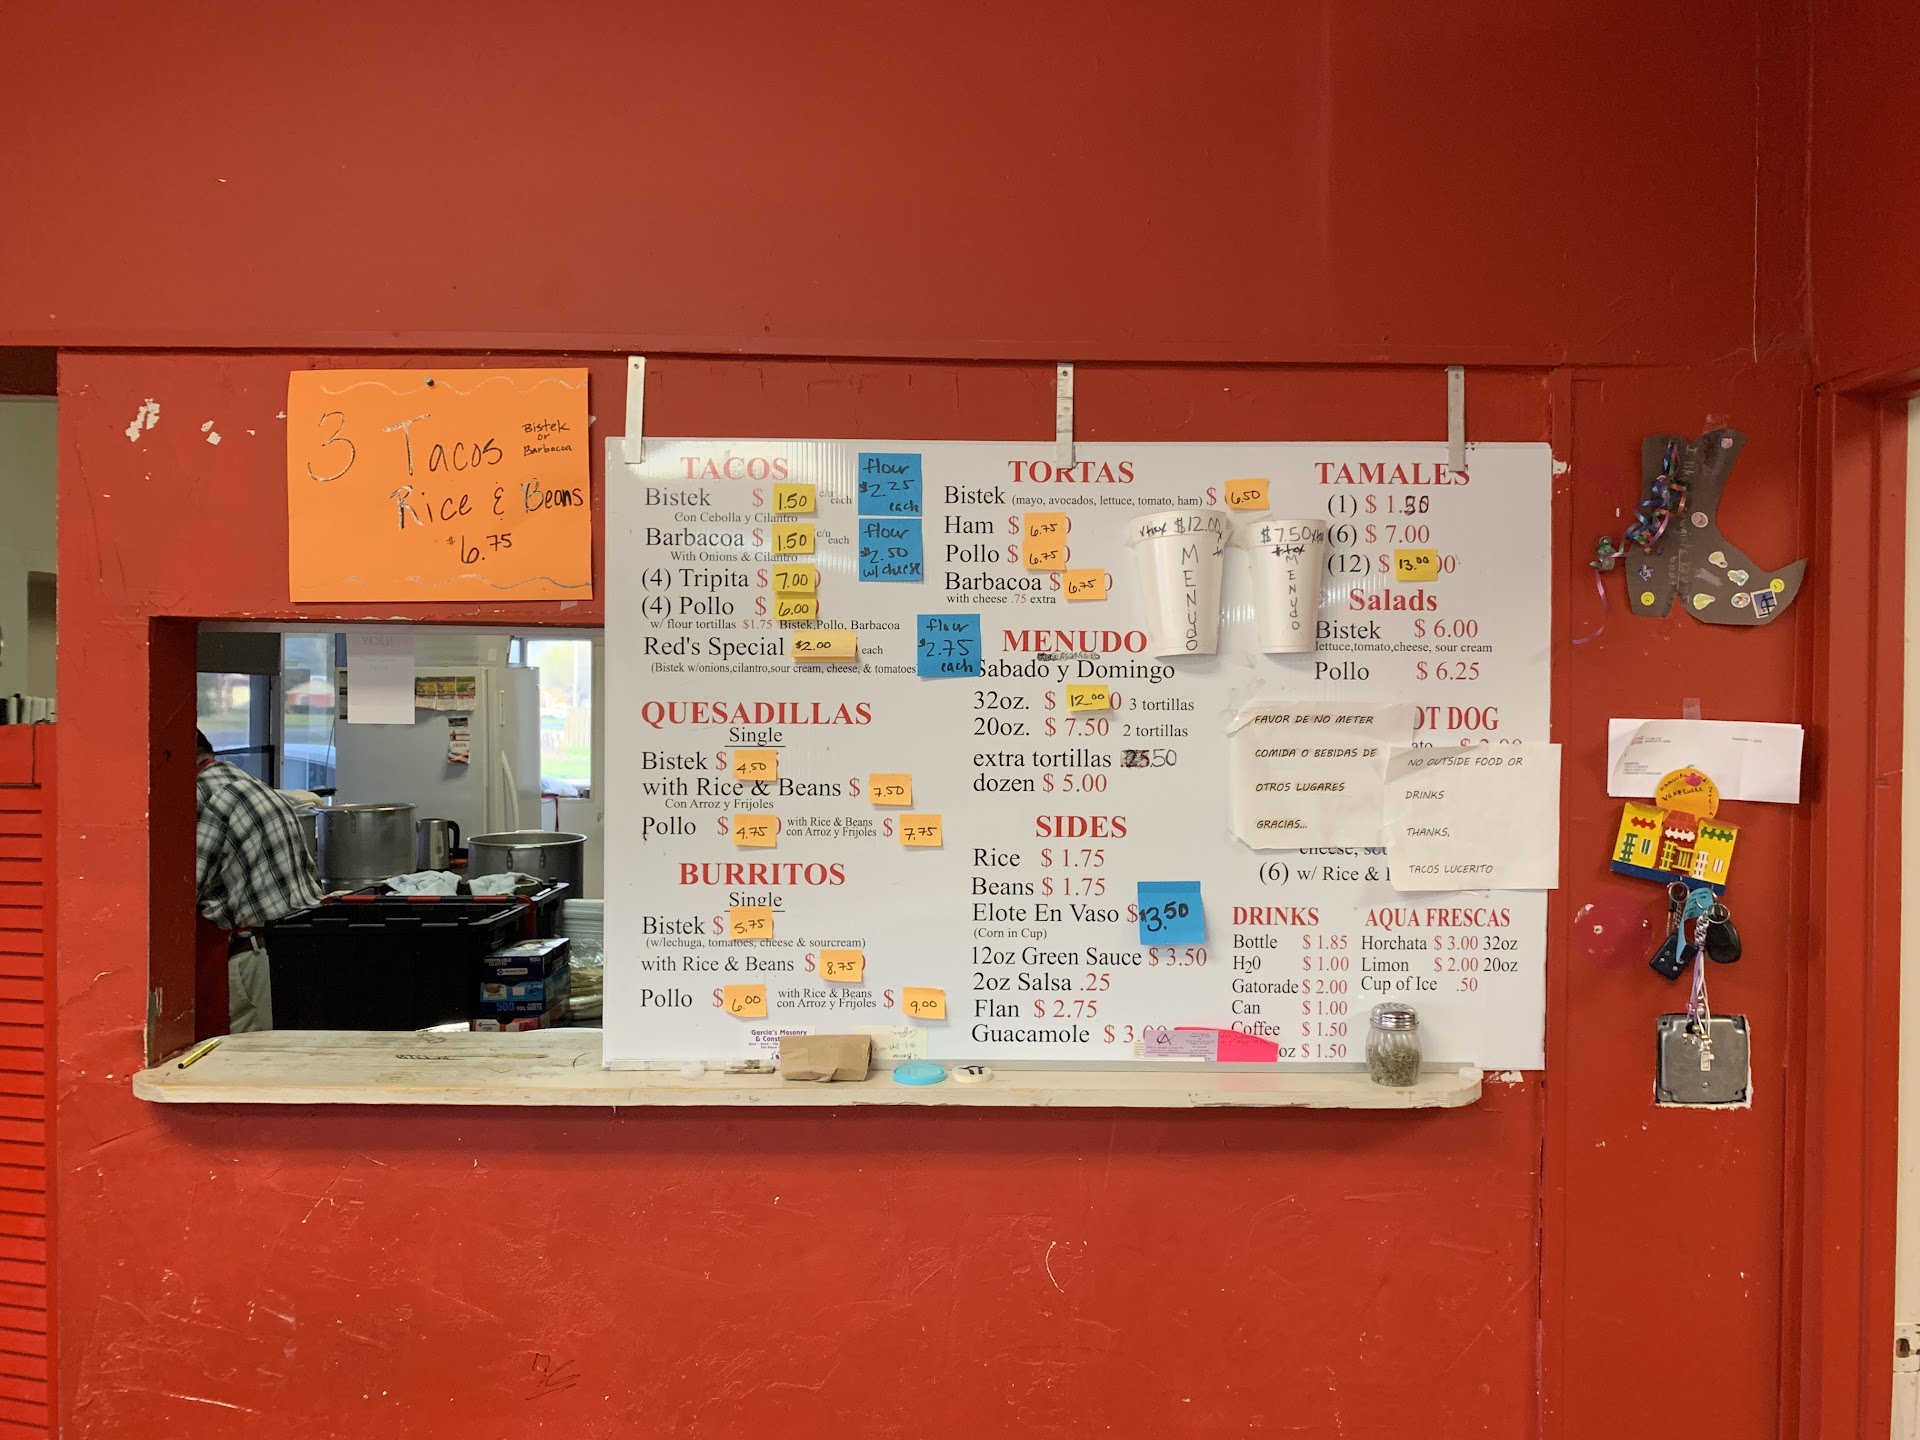 3 Tacos Bistek or Barbacoa
Rice & Beans
$6.75
TACOS
Bistek $ 1.50 c/u each
Con Cebolla y Cilantro
flour $2.25 each
Barbacoa $ 1.50 c/u each
With Onions & Cilantro
flour $2.50 w/ cheese
(4) Tripita $ 7.00
(4) Pollo $ 6.00
w/ flour tortillas $1.75 Bistek,Pollo, Barbacoa
Red's Special $2.00 each
(Bistek w/onions,cilantro,sour cream, cheese, & tomatoes
flour $2.75 each
QUESADILLAS
Single
Bistek $ 4.50
with Rice & Beans $ 7.50
Con Arroz y Frijoles
Pollo $ 4.75 with Rice & Beans con Arroz y Frijoles $ 7.75
BURRITOS
Single
Bistek $ 5.75
(w/lechuga, tomatoes, cheese & sourcream)
with Rice & Beans $ 8.75
Pollo $ 6.00 with Rice & Beans con Arroz y Frijoles $ 9.00
TORTAS
Bistek (mayo, avocados, lettuce, tomato, ham) $ 6.50
Ham $ 6.75
Pollo $ 6.75
Barbacoa $ 6.75
with cheese .75 extra
MENUDO
Sabado y Domingo
32oz. $ 12.00 3 tortillas
20oz. $ 7.50 2 tortillas
extra tortillas .50
dozen $ 5.00
$12.00
MENUDO
$7.50
MENUDO
SIDES
Rice $ 1.75
Beans $ 1.75
Elote En Vaso $3.50
(Corn in Cup)
12oz Green Sauce $ 3.50
2oz Salsa .25
Flan $ 2.75
Guacamole $ 3.00
TAMALES
(1) $ 1.50
(6) $ 7.00
(12) $ 13.00
Salads
Bistek $ 6.00
lettuce,tomato,cheese, sour cream
Pollo $ 6.25
OT DOG
FAVOR DE NO METER
COMIDA O BEBIDAS DE
OTROS LUGARES
GRACIAS...
NO OUTSIDE FOOD OR
DRINKS
THANKS,
TACOS LUCERITO
cheese,
(6) w/ Rice &
DRINKS
Bottle $ 1.85
H20 $ 1.00
Gatorade $ 2.00
Can $ 1.00
Coffee $ 1.50
oz $ 1.50
AQUA FRESCAS
Horchata $ 3.00 32oz
Limon $ 2.00 20oz
Cup of Ice .50
Garcia's Masonry
& Const
500 FOIL SHEETS
VENEZUELA